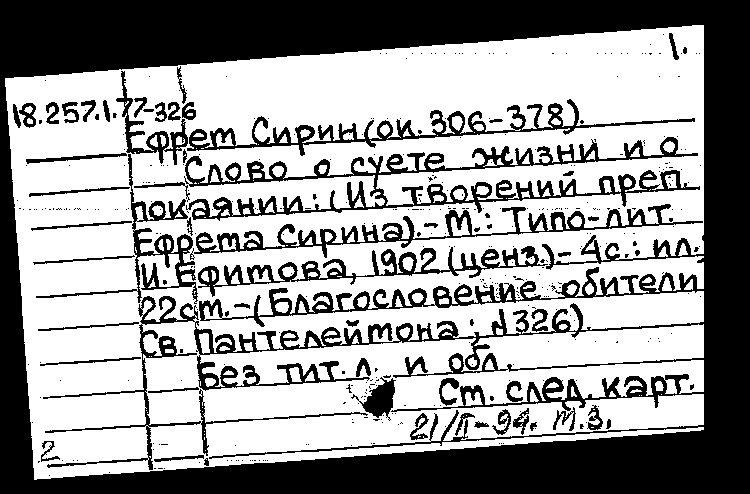 1.
18.257.1.77-326
Ефрем Сирин (ок. 306-378).
Слово о суете жизни и о
покаянии: (Из творений преп.
Ефрема Сирина).- М.: Типо-лит.
И. Ефимова, 1902 (ценз.)- 4с.: ил.;
22см.-(Благословение обители
Св. Пантелеймона; №326).
Без тит. л. и обл.
Ст. след. карт.
21/II-94. М.З.
2